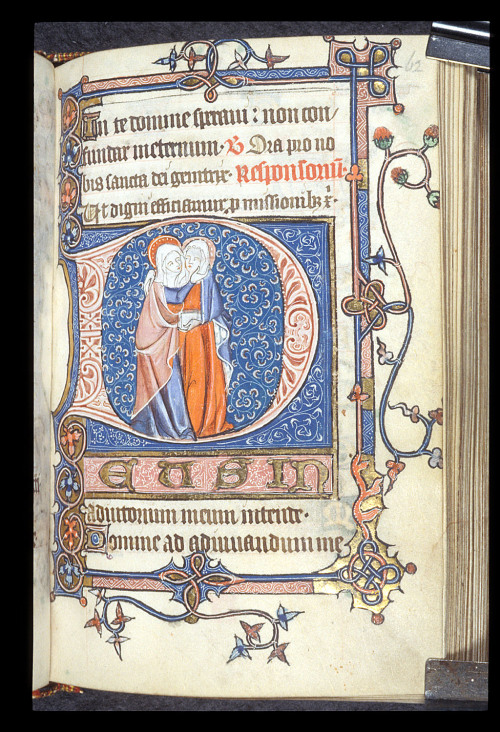 62
In te domine speraui : non con/
fundar in eternum. ℣ Ora pro no
bis sancta dei genitrix. Responsoriū.
Ut digni efficiamur ꝓmissionibꝫ xͥ.
D
EUS IN
adiutorium meum intende.
Domine ad adiuuandum me